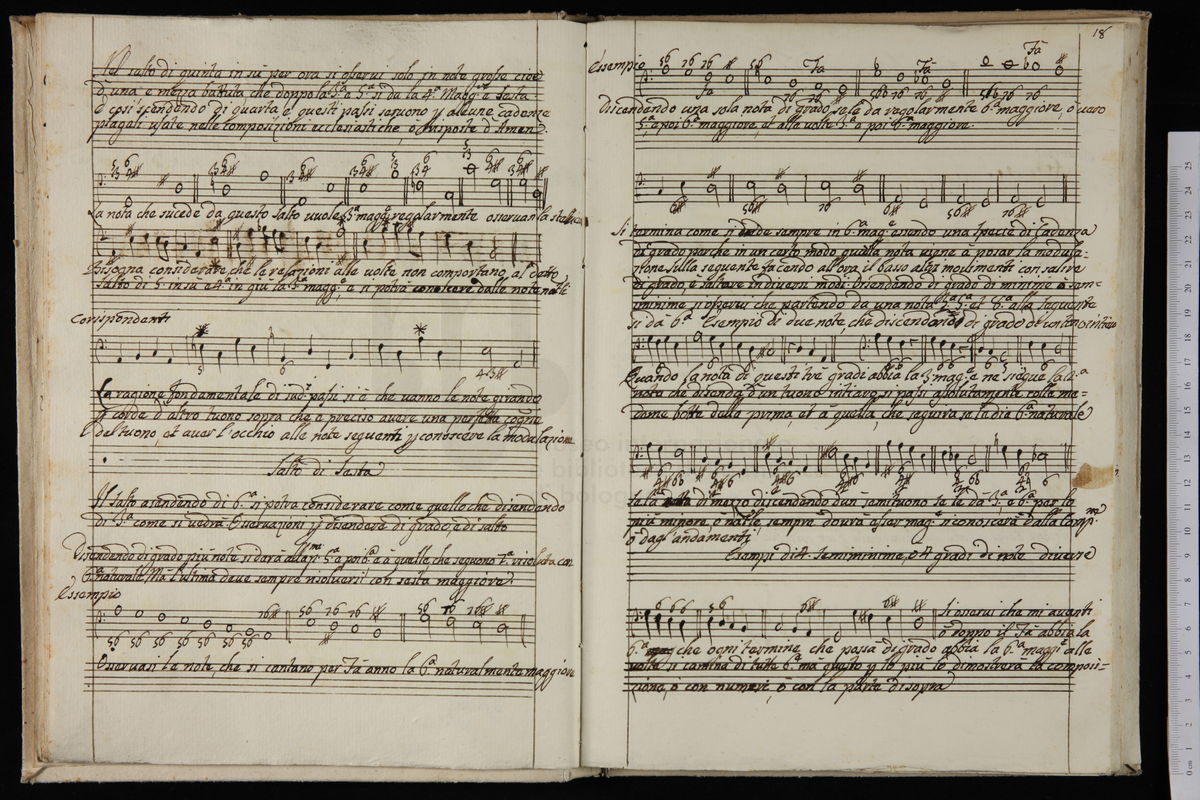 Nel salto di quinta in sù per ora si osservi solo in note grosse cioè
d'una e mezza battuta che doppo la 3ª e 5ª si dà la 4ª Magg.e e Sesta
e così scendendo di quarta e questi passi servono p alcune cadenze
plagali usate nelle composizioni ecclesiastiche, o risposte d'Amen.
La nota che sucede da questo salto vuole 3ª magg.e regolarmente osservan
Bisogna considerare che le relazioni alle volte non comportano al detto
salto di 5ª in sù e 4ª in giù la 3ª magg.e e si potrà conoscere dalle note
Corispondenti
La ragione fondamentale di sud.i passi si è che vanno le note girando
p corde d'altro tuono sopra che è preciso avere una perfetta cogne
del tuono, et aver l'occhio alle note seguenti p conoscere la modulazione
Salto di Sesta
Il salto asendendo di 6ª si potrà considerare come quello che disendendo
di 3ª come si vedrà Osservazioni p disendere di grado, e di salto
Disendendo di grado più note si darà alla p.ma 5ª poi 6ª e à quelle che seguono 7ª risoluta con
6ª naturale, Ma l'ultima deve sempre risolversi con sesta maggiore
Essempio
Osservasi le note, che si cantano per Fà anno la 6ª naturalmente maggiore
18
Essempio
Fà
Fà
Fà
Fa
Discendendo una sola nota di grado se le dà regolarmente 6ª maggiore, o vero
5ª e poi 6ª maggiore, et alle volte 7ª e poi 6ª maggiore.
Si termina come si vede sempre in 6ª mag.e esendo una specie di Cadenza
di grado perche in un certo modo quella nota viene à posar la modula-
zione sulla seguente facendo all'ora il basso altri movimenti con salire
di grado, e saltare in diversi modi. Disendendo di gradi di minime o sem-
minime si osservi che partendo da una nota 3ª 5ª et 6ª alla seguente
si dà 6ª Esempio di due note che discendono di grado di un tuono intiero
Quando la nota di questi trè gradi abbia la 3ª mag.e e ne siegue l'alta
nota che disenda d'un tuono intiero, si passi assolutamente colla me-
dame botte della prima, et à quella, che seguirà se li dia 6ª naturale
Se la nota di mezzo discendendo d'un semituono se le dà 3ª, e 6ª per lo
più minore, o nat.le, sempre dovrà esser mag.e si conoscerà dalla comp.ne
o dagl'andamenti
Esempi di 4 seminime, e 4 gradi di note diverse
Si osservi che mi avanti
o doppo il Fà abbia la
6ª che ogni termine che passa di grado abbia la 6ª magg.e alle
volte si camina di tutte 6ª mà questo p lo più lo dimostrerà la composi-
cione, ò con numeri, ò con la parte di sopra